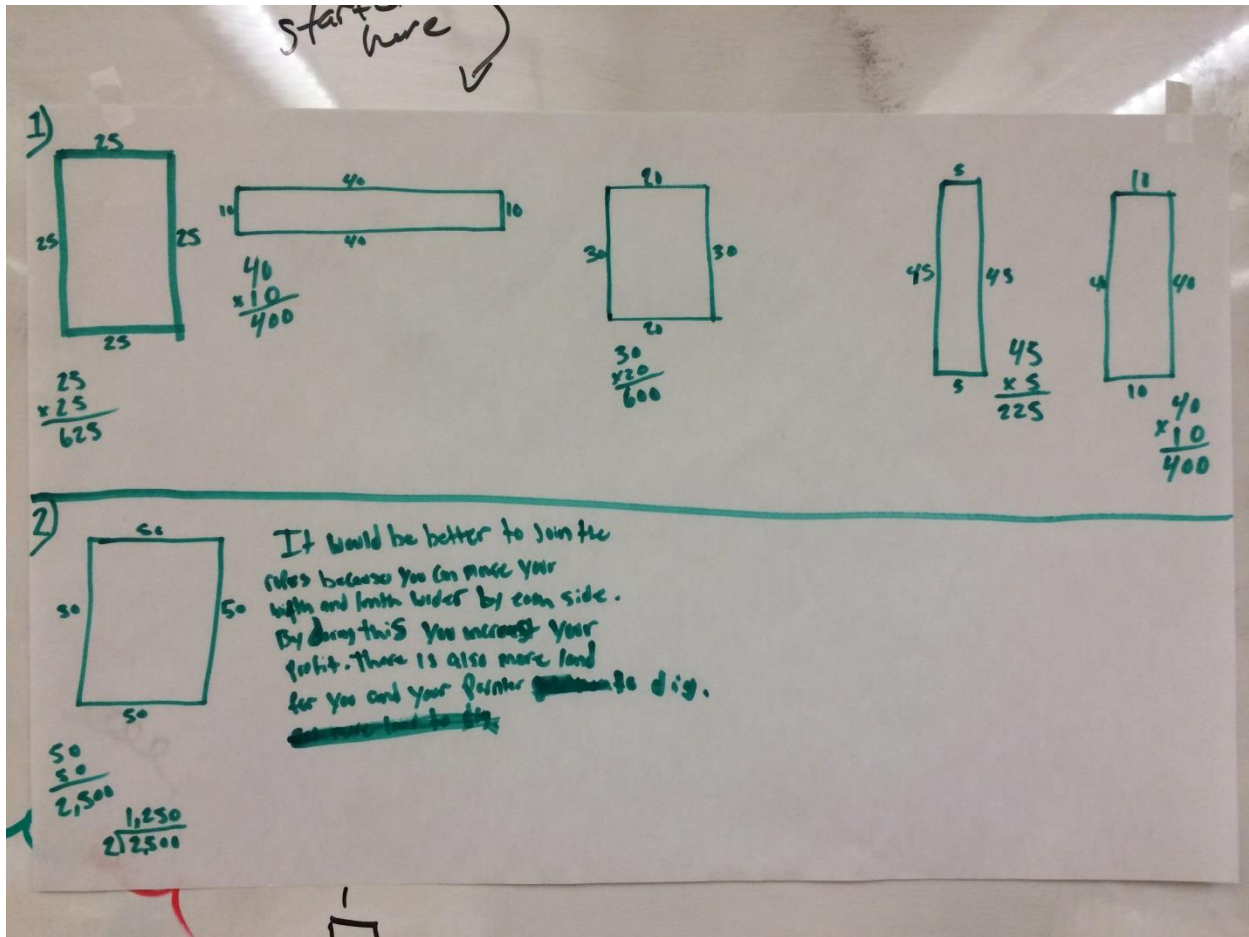 here
1)
25
25
25
25
25
×25
625
40
10
10
40
40
×10
400
20
30
30
20
30
×20
600
5
45
45
5
45
×5
225
10
40
40
10
40
×10
400
2)
50
50
50
50
50
2,500
1,250
2 2,500
It would be better to Join the
because you can your
and wider by side.
By doing this you your
profit. There is also more land
for you and your to dig.